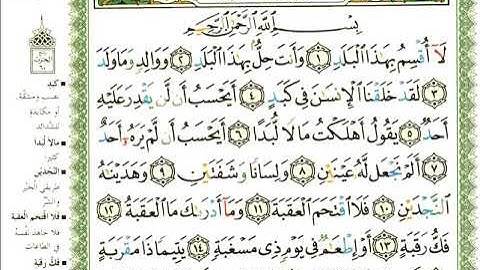 بِسْمِ اللَّهِ الرَّحْمَٰنِ الرَّحِيمِ
لَا أُقْسِمُ بِهَٰذَا الْبَلَدِ ١ وَأَنتَ حِلٌّ بِهَٰذَا الْبَلَدِ ٢ وَوَالِدٍ وَمَا وَلَدَ
٣ لَقَدْ خَلَقْنَا الْإِنسَانَ فِي كَبَدٍ ٤ أَيَحْسَبُ أَن لَّن يَقْدِرَ عَلَيْهِ
أَحَدٌ ٥ يَقُولُ أَهْلَكْتُ مَالًا لُّبَدًا ٦ أَيَحْسَبُ أَن لَّمْ يَرَهُ أَحَدٌ
٧ أَلَمْ نَجْعَل لَّهُ عَيْنَيْنِ ٨ وَلِسَانًا وَشَفَتَيْنِ ٩ وَهَدَيْنَاهُ
النَّجْدَيْنِ ١٠ فَلَا اقْتَحَمَ الْعَقَبَةَ ١١ وَمَا أَدْرَاكَ مَا الْعَقَبَةُ ١٢
فَكُّ رَقَبَةٍ ١٣ أَوْ إِطْعَامٌ فِي يَوْمٍ ذِي مَسْغَبَةٍ ١٤ يَتِيمًا ذَا مَقْرَبَةٍ
كبد
نصب ومشقة
أو مكابدة
للشدائد
مالا لبدا
كثيرا
النجدين
طريقي الخير
والشر
فلا اقتحم العقبة
فلا جاهد نفسه
في الطاعات
فك رقبة